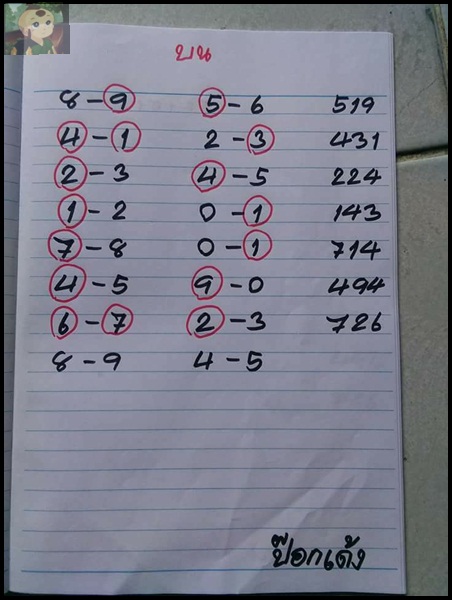 บน
8-9 5-6 519
4-1 2-3 431
2-3 4-5 224
1-2 0-1 143
7-8 0-1 714
4-5 9-0 494
6-7 2-3 726
8-9 4-5
ป๊อกเด้ง